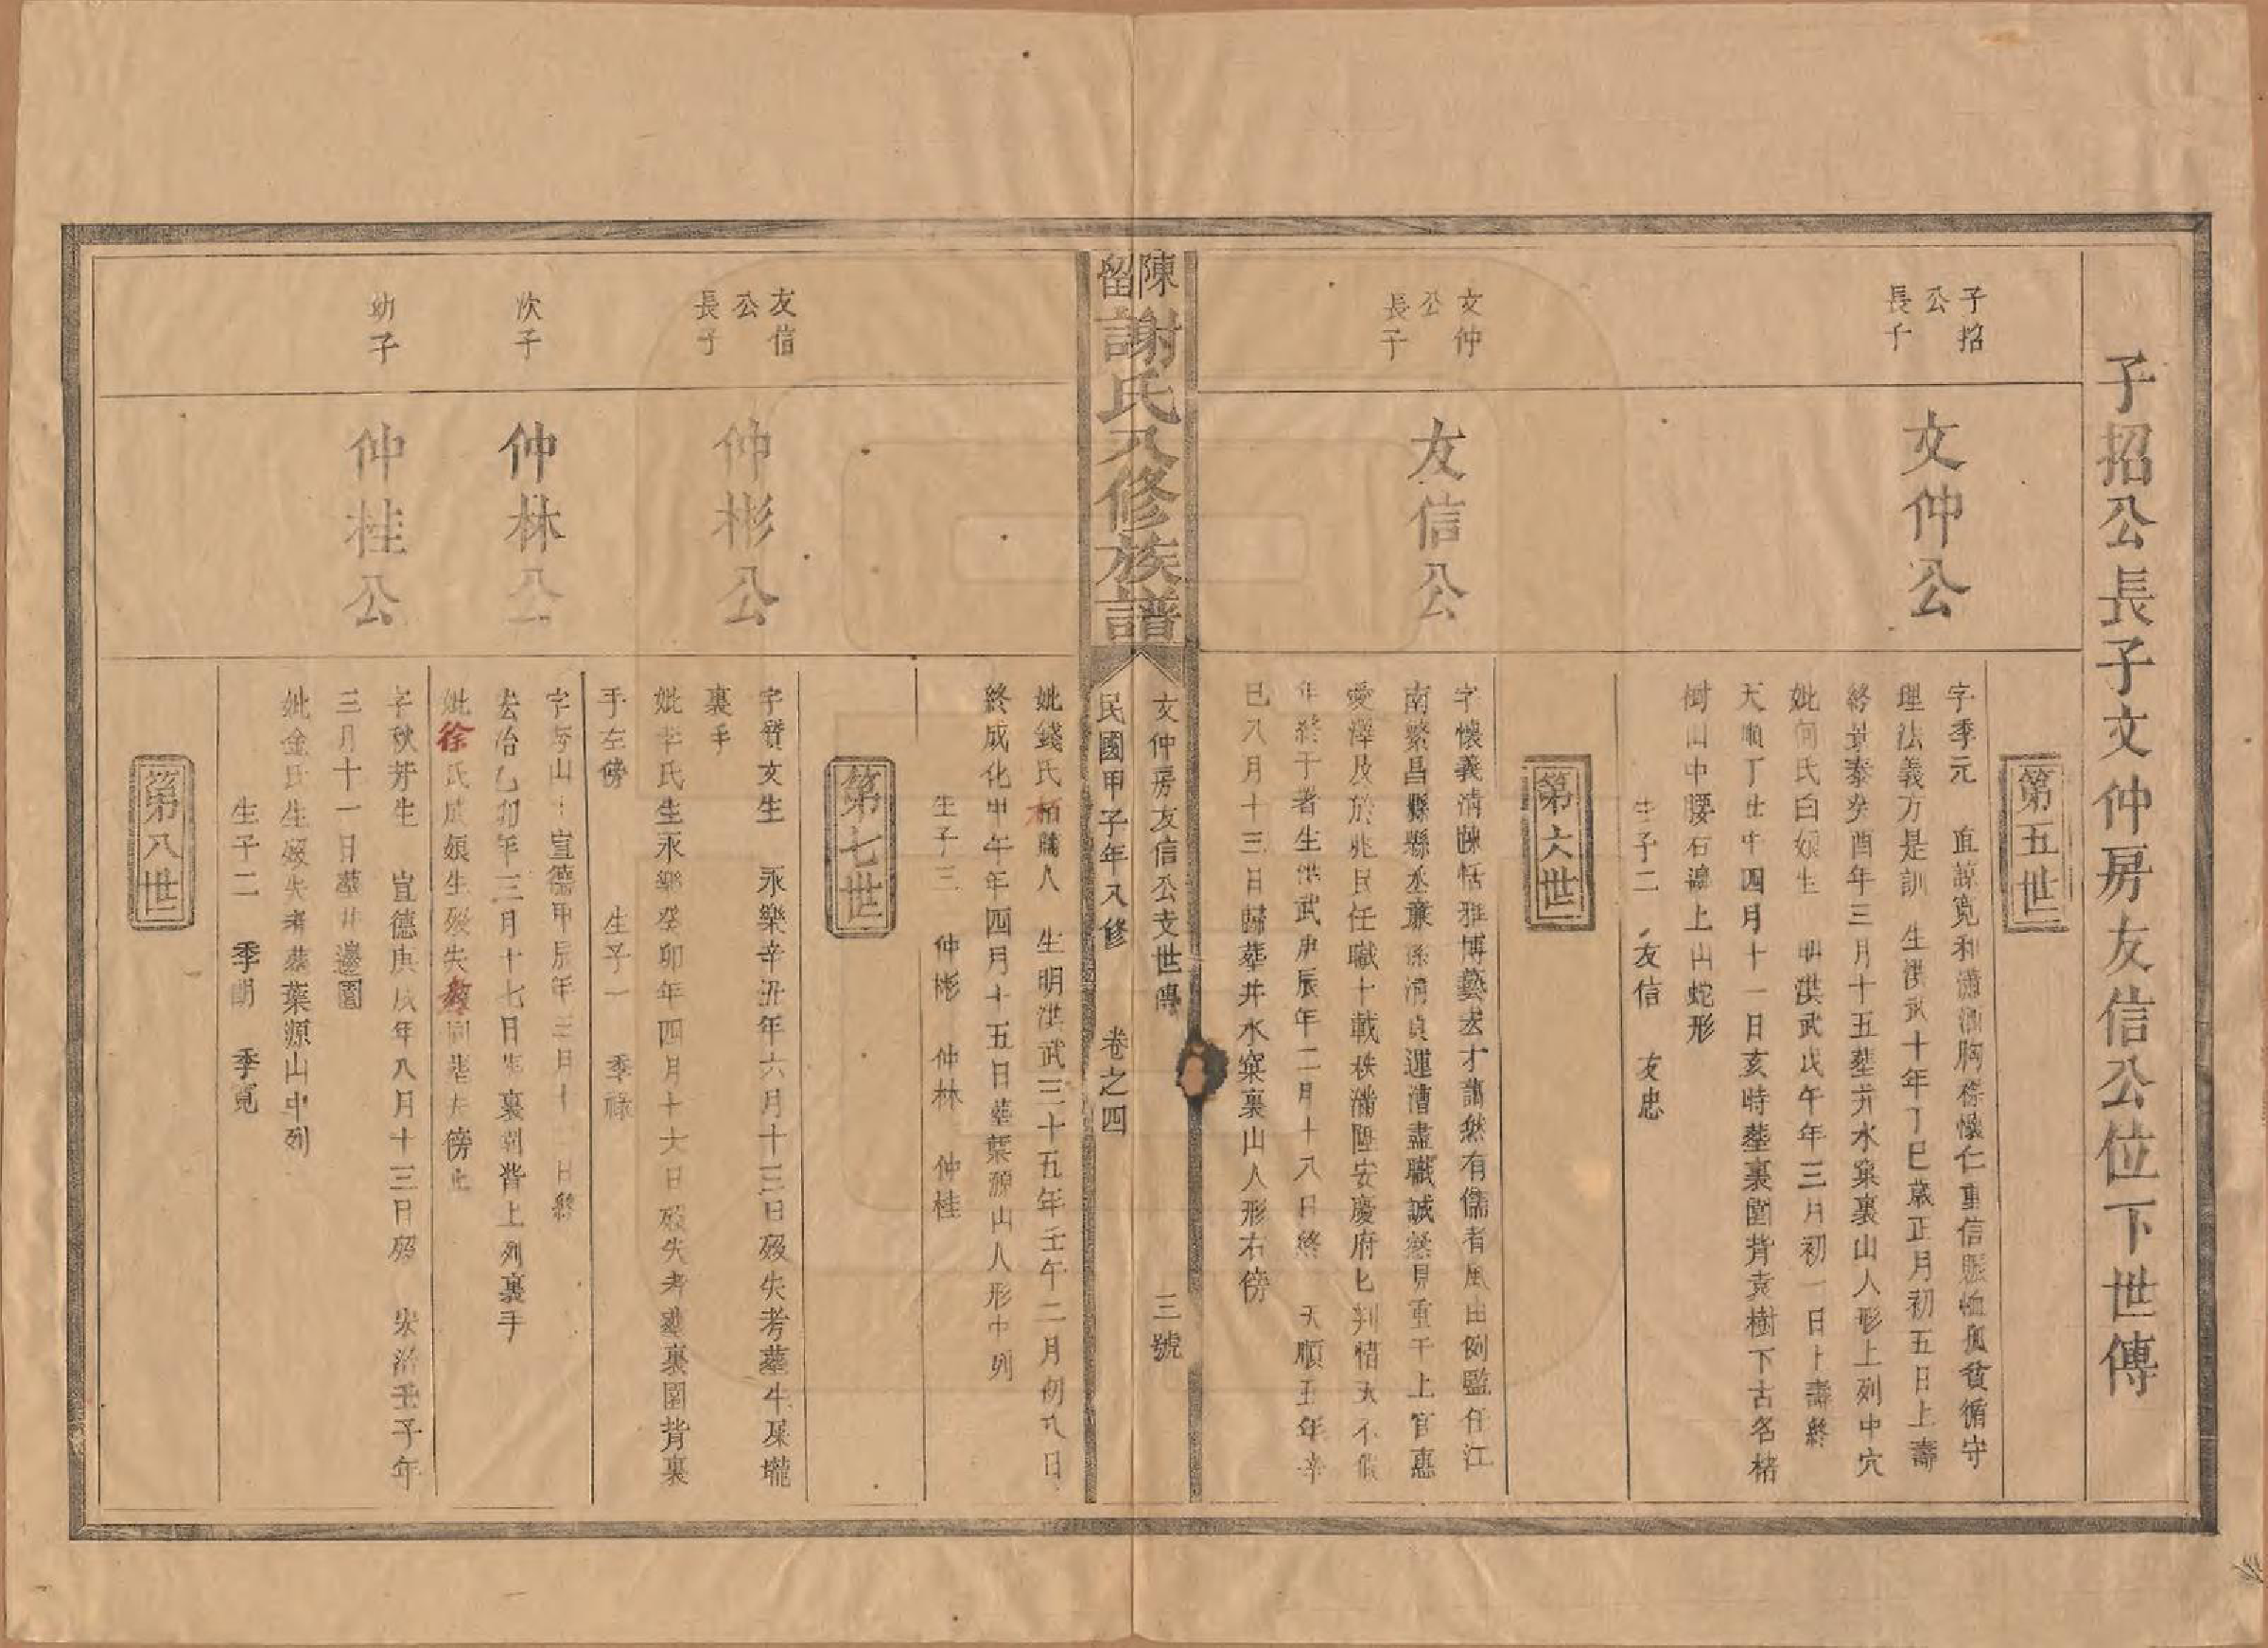 子招公長子文仲房友信公位下世傳
第五世
子招
公
長子
文仲公
字季元 直諒寬和瀟洒胸襟懷仁重信賑恤孤貧循守
理法義方是訓 生洪武十年丁巳歲正月初五日上壽
終景泰癸酉年三月十五塟井水窠裏山人形上列中穴
妣何氏白娘生 明洪武戊午年三月初一日上壽終
天順丁丑年四月十一日亥時塟裏園背袁樹下古名楮
樹山中腰石 上山蛇形
生子二 友信 友忠
第六世
文仲
公
長子
友信公
字懷義清 恬雅博藝 才藹然有儒者風由例監任江
南繁昌縣縣丞 清貞運漕盡職誠 見重于上官惠
愛澤及於兆民任職十載秩滿陞安慶府 判惜天不假
年終于 生洪武庚辰年二月十八日終 天順五年辛
巳八月十三日歸塟井水窠裏山人形右傍
陳留謝氏八修族譜
文仲房友信公支世傳 三號
民國甲子年八修 卷之四
妣錢氏 人 生明洪武三十五年壬午二月初九日
終成化甲午年四月十五日塟葉源山人形中列
生子三 仲彬 仲林 仲桂
第七世
友信
公
長子
仲彬公
字質文生 永樂辛丑年六月十三日歿失考塟牛屎壠
裏手
妣李氏生永樂癸卯年四月十六日歿失考塟裏園背裏
手左傍
生子一 季祿
次子
仲林公
字 山生宣德甲辰年三月十 日終
宏治乙卯年三月十七日塟裏園背上列裏手
妣徐氏 娘生歿失考同塟左傍
幼子
仲桂公
字秋芳生 宣德庚戌年八月十三日歿 宏治壬子年
三月十一日塟井邊園
妣金氏生歿失考塟葉源山中列
生子二 季朗 季寬
第八世